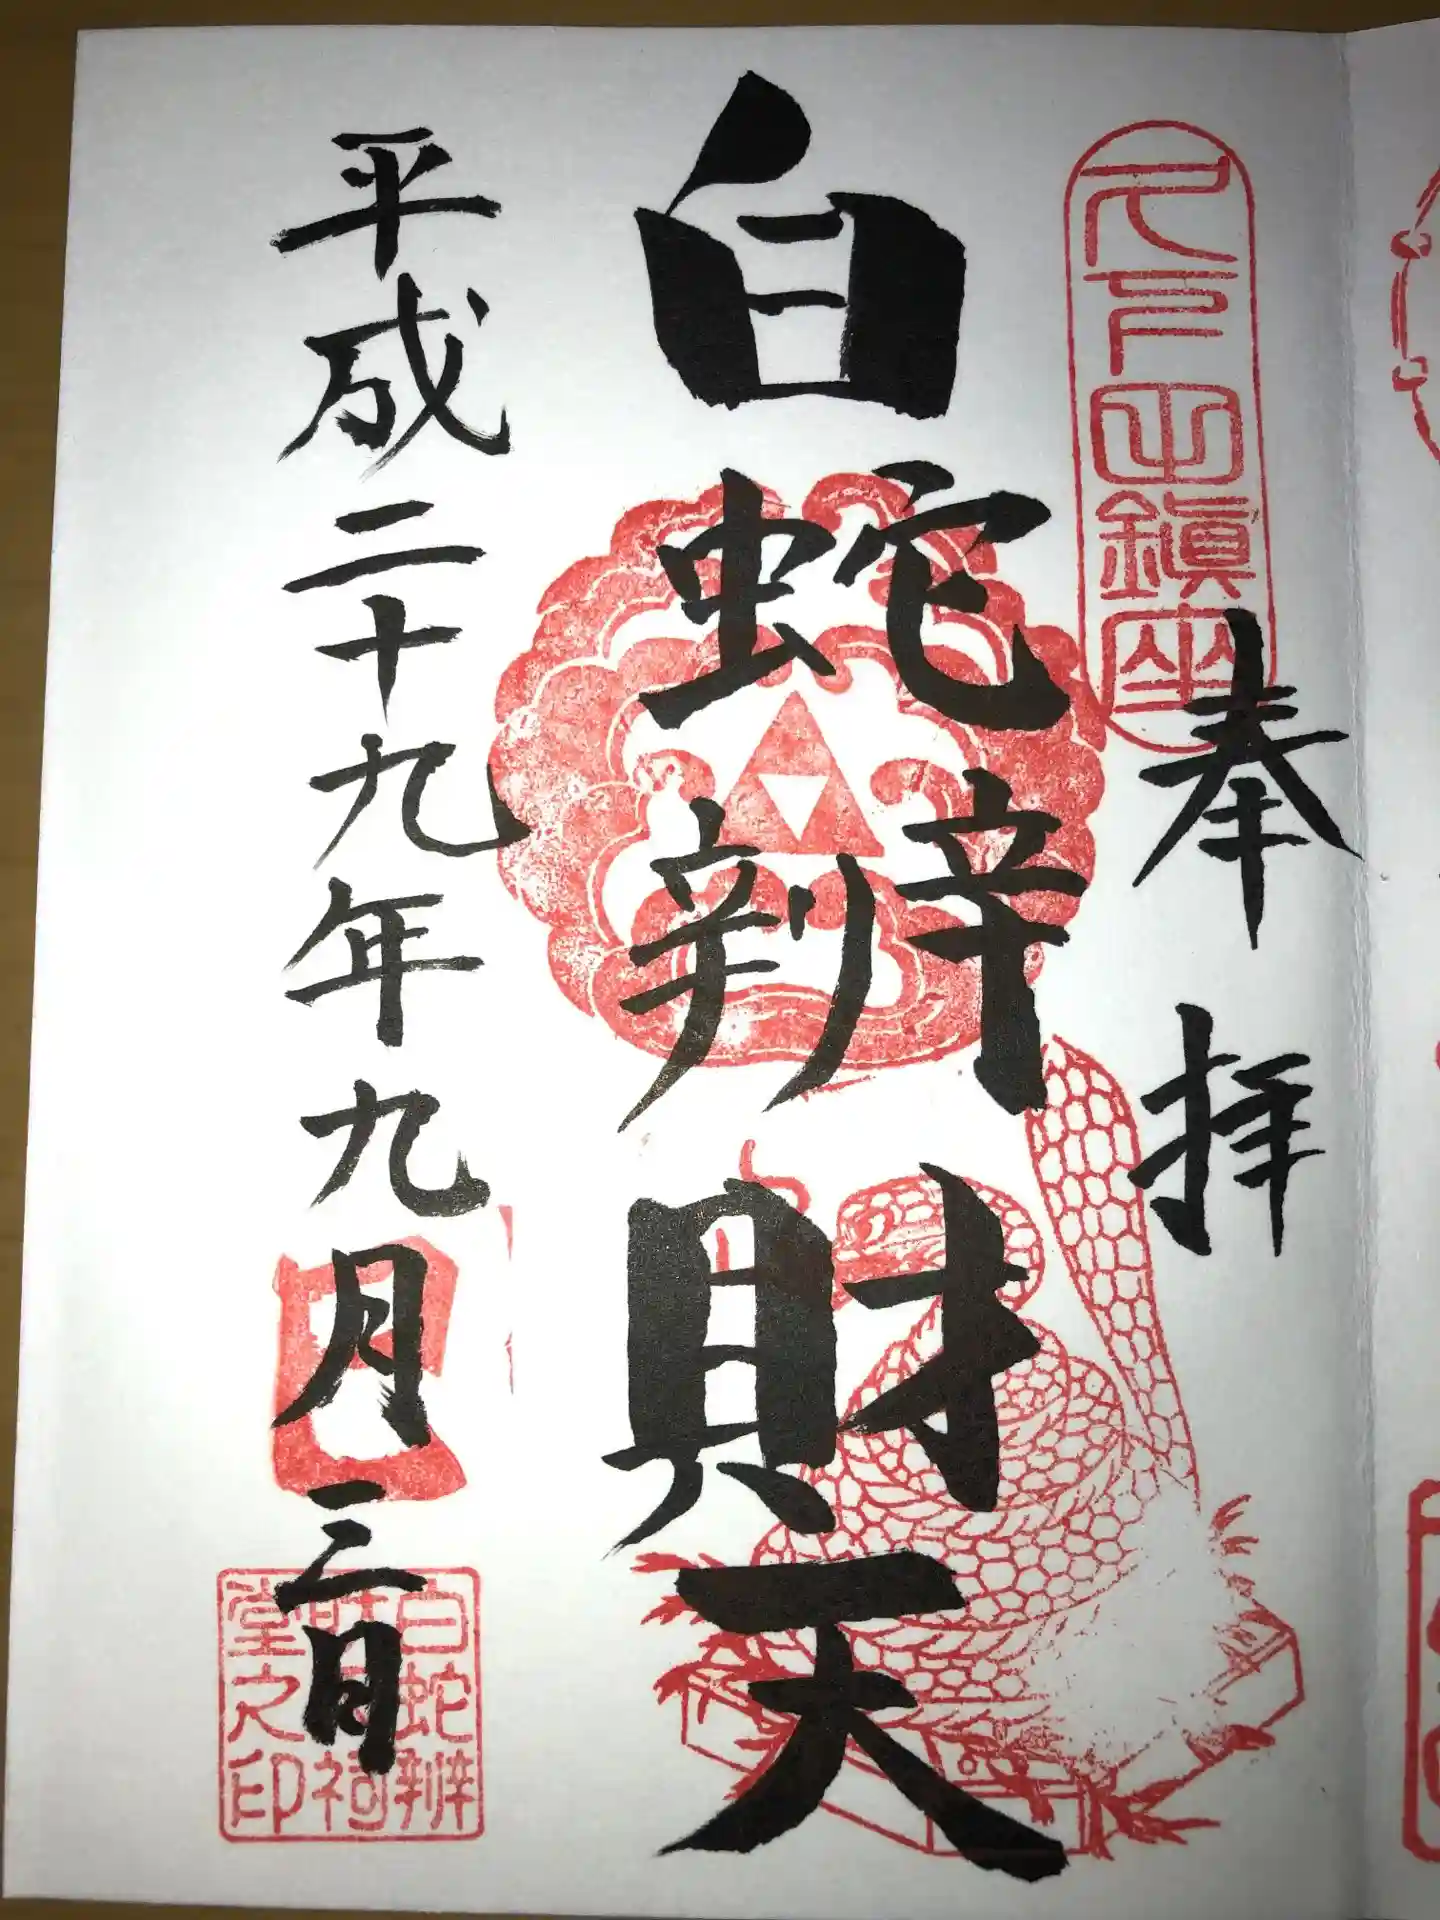 久下田鎮座
奉拝
白蛇辨財天
平成二十九年九月三日
白蛇辨
財天祠
堂之印